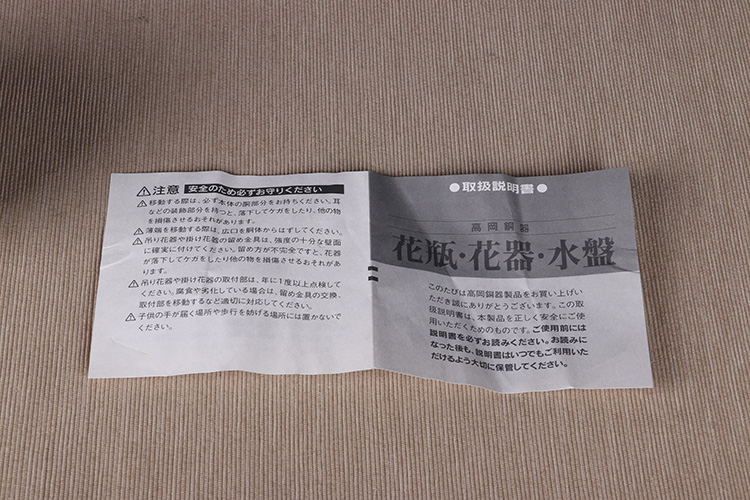 ⚠注意 安全のため必ずお守りください
⚠移動する際は、必ず本体の胴部分をお持ちください。耳
などの装飾部分を持つと、落下してケガをしたり、他の物
を損傷させるおそれがあります。
⚠薄端を移動する際は、広口を胴体からはずしてください。
⚠吊り花器や掛け花器の留め金具は、強度の十分な壁面
に確実に付けてください。留め方が不完全ですと、花器
が落下してケガをしたり他の物を損傷させるおそれがあ
ります。
⚠吊り花器や掛け花器の取付部は、年に1度以上点検して
ください。腐食や劣化している場合は、留め金具の交換、
取付部を移動するなど適切に対応してください。
⚠子供の手が届く場所や歩行を妨げる場所には置かないで
ください。
●取扱説明書●
高岡銅器
花瓶・花器・水盤
このたびは高岡銅器製品をお買い上げい
ただき誠にありがとうございます。この取
扱説明書は、本製品を正しく安全にご使
用いただくためのものです。ご使用前には
説明書を必ずお読みください。お読みに
なった後も、説明書はいつでもご利用いた
だけるよう大切に保管してください。